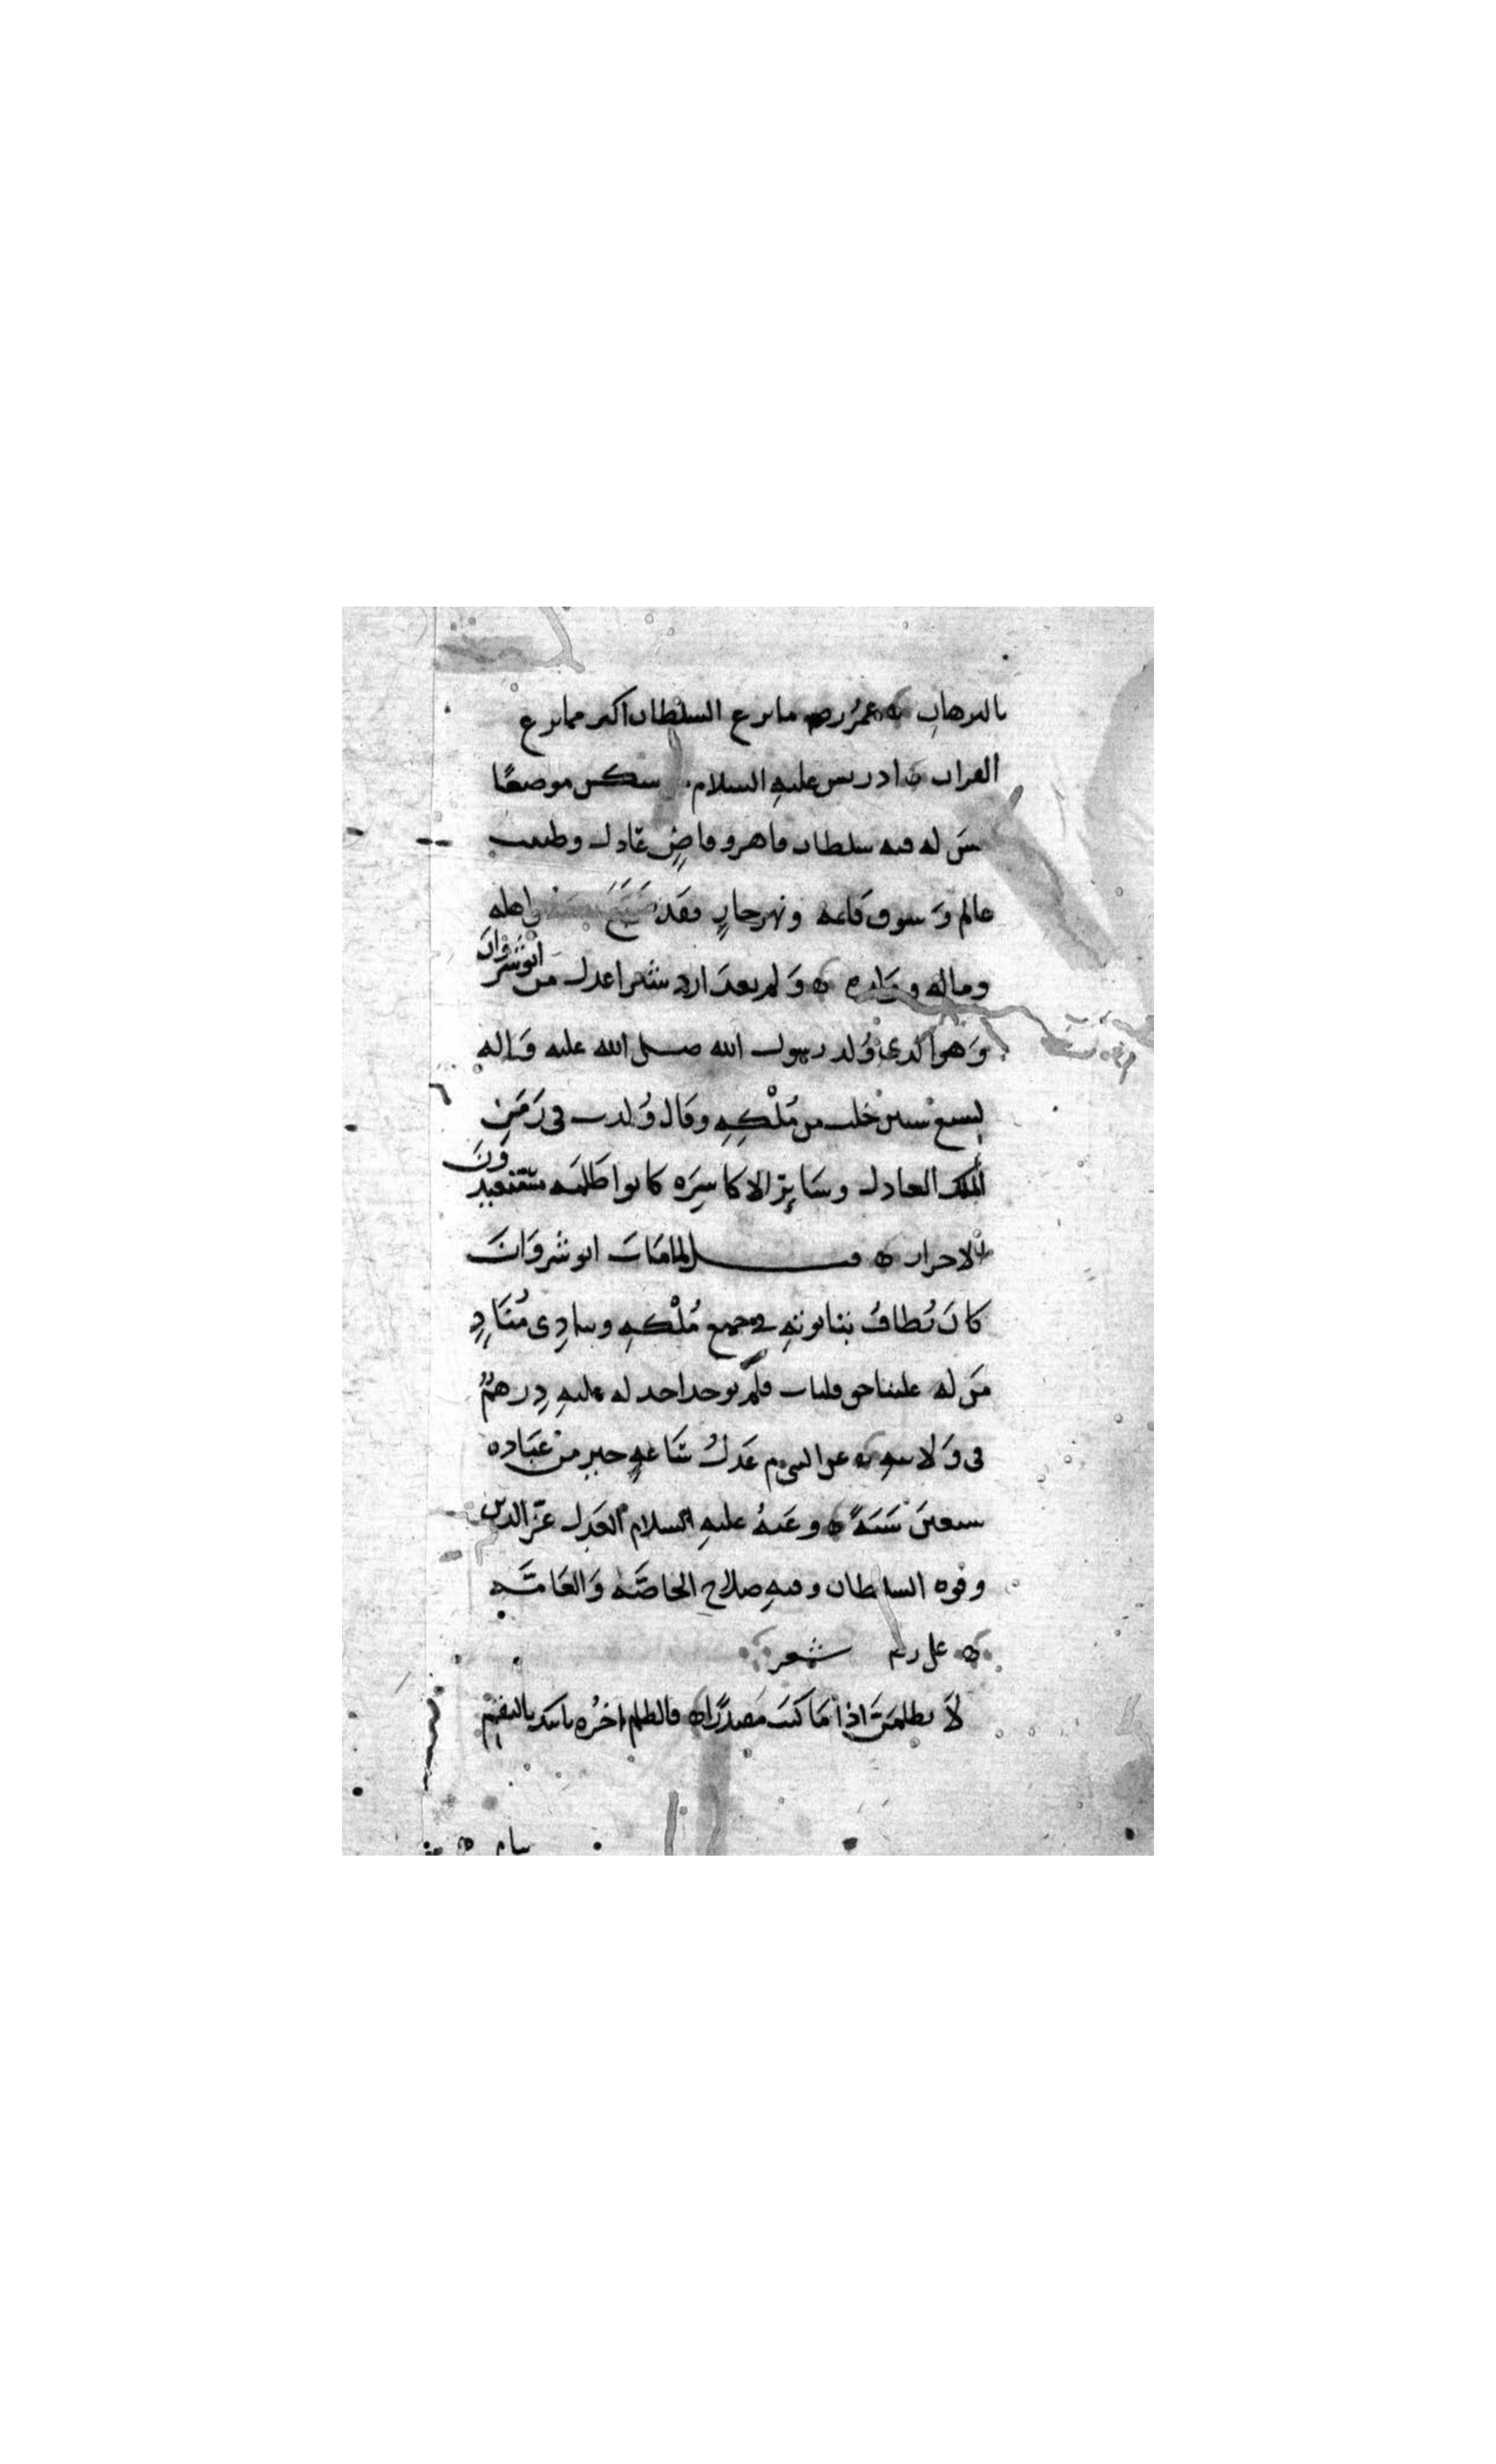 بالبرهان ه عمر رضه ما يزع السلطان اكثر مما يزع
القران ه ادريس عليه السلام من سكن موضعا
ليس له فيه سلطان قاهر و قاضٍ عَادل وطبيب
عالم وَ سوق قَائمة ونهر جارٍ فقد ضَيَّعَ نفسه و اهله
وماله و وَلده ه وَ لم يعد اردشير اعدل من انُوشَروَان
وَهو الذي وُلد رسول الله صلى الله عليه وَاله
لتسع سنين خلت من مُلْكِهِ وقال وُلدت في زَمَنِ
الملك العادل وسَايِرُ الاكاسِرَه كانوا ظَلَمَه يستعبِدُونَ
الاحرار ه قيل لما مَاتَ انوشروَانَ
كانَ يُطافُ بتابوتهِ في جميع مُلْكِهِ وينادِى مُنَادٍ
مَن له علينا حق فليات فلم يوجد احد له عليهِ دِرهمٌ
فى وَلايتهِ ه عن النبي م عَدلُ سَاعةٍ خير من عبَاده
سبعين سَنَةً ه وعَنهُ عليهِ السلام العَدل عزّ الدين
وقوه السلطان وفيهِ صلاح الخاصَّه وَالعَامَّه
ه على رم شعر
لاَ تظلمَنَّ اذا مَا كنتَ مقتدرًا ه فالظلم اخرُه ياتيك بالندم